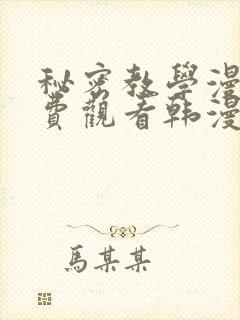 秘密教學漫
費觀看韩漫
馬某某